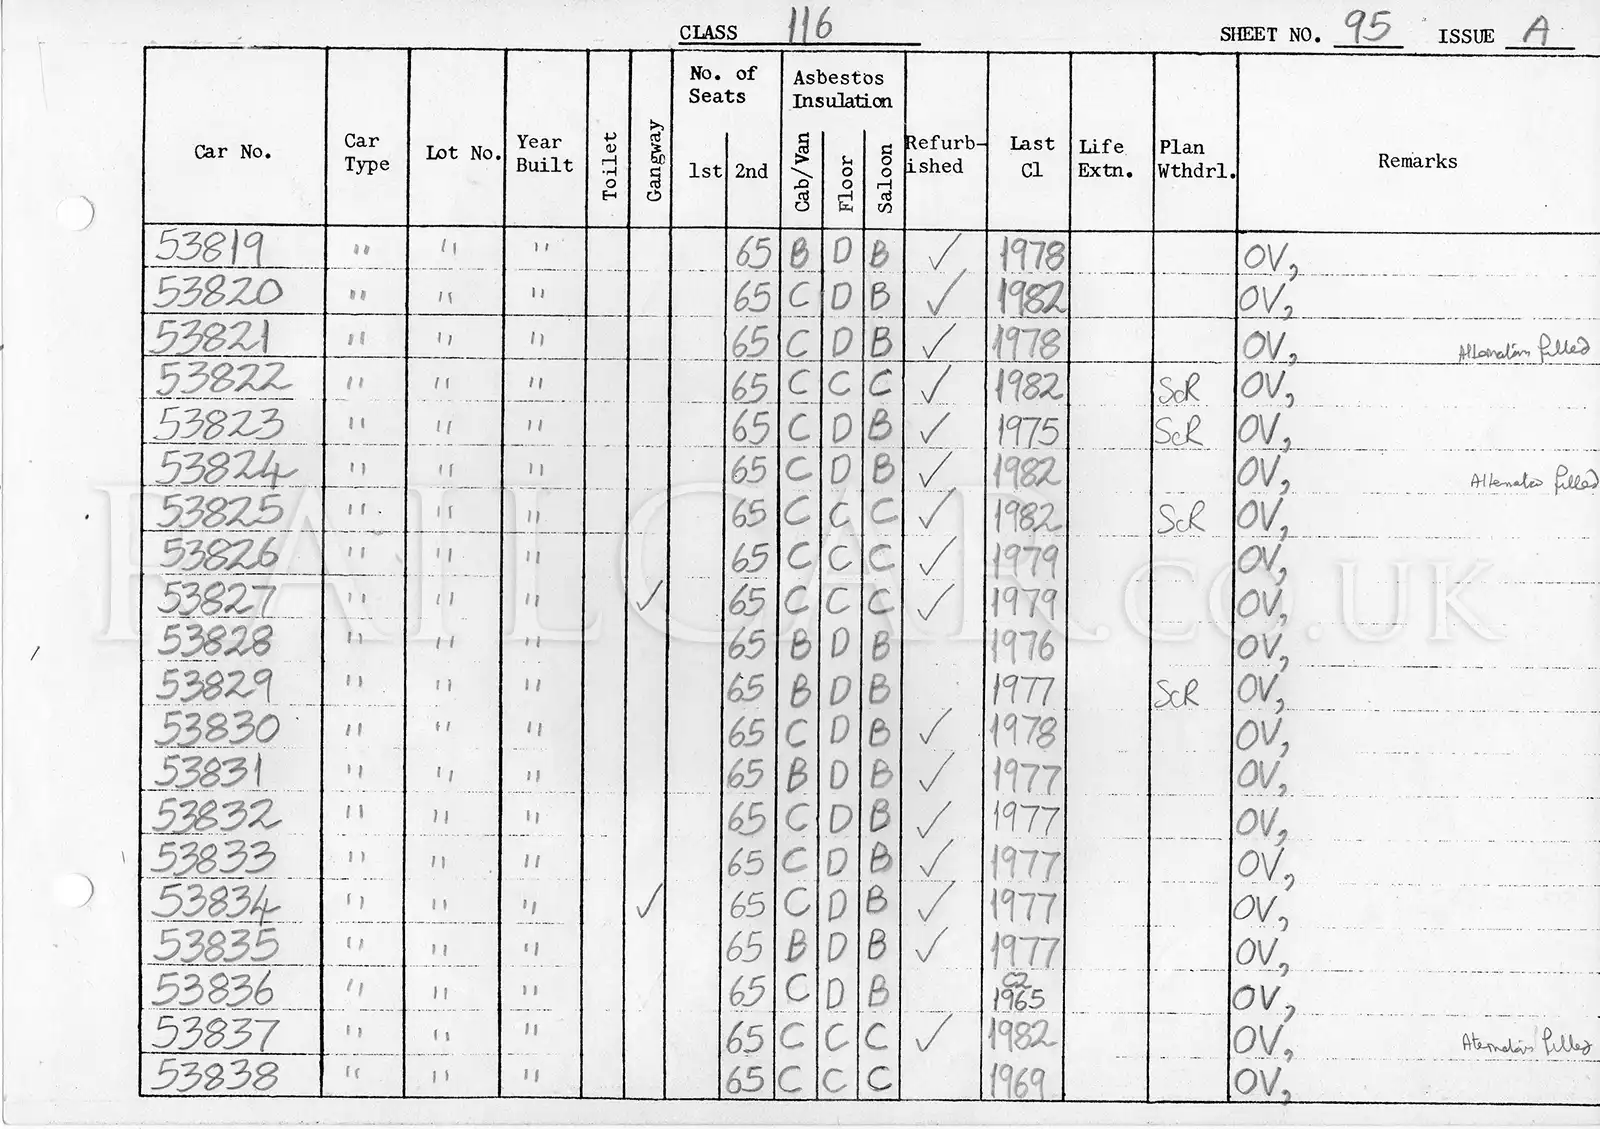 CLASS 116 SHEET NO. 95 ISSUE A
No. of Seats Asbestos Insulation
Car No. Car Type Lot No. Year Built Toilet Gangway 1st 2nd Cab/Van Floor Saloon Refurb-ished Last Cl Life Extn. Plan Wthdrl. Remarks
53819 " " " 65 B D B ✓ 1978 OV,
53820 " " " 65 C D B ✓ 1982 OV,
53821 " " " 65 C D B ✓ 1978 OV, fitted
53822 " " " 65 C C C ✓ 1982 ScR OV,
53823 " " " 65 C D B ✓ 1975 ScR OV,
53824 " " " 65 C D B ✓ 1982 OV, fitted
53825 " " " 65 C C C ✓ 1982 ScR OV,
53826 " " " 65 C C C ✓ 1979 OV,
53827 " " " ✓ 65 C C C ✓ 1979 OV,
53828 " " " 65 B D B 1976 OV,
53829 " " " 65 B D B 1977 ScR OV,
53830 " " " 65 C D B ✓ 1978 OV,
53831 " " " 65 B D B ✓ 1977 OV,
53832 " " " 65 C D B ✓ 1977 OV,
53833 " " " 65 C D B ✓ 1977 OV,
53834 " " " ✓ 65 C D B ✓ 1977 OV,
53835 " " " 65 B D B ✓ 1977 OV,
53836 " " " 65 C D B C2 1965 OV,
53837 " " " 65 C C C ✓ 1982 OV, fitted
53838 " " " 65 C C C 1969 OV,
RAILCAR.CO.UK